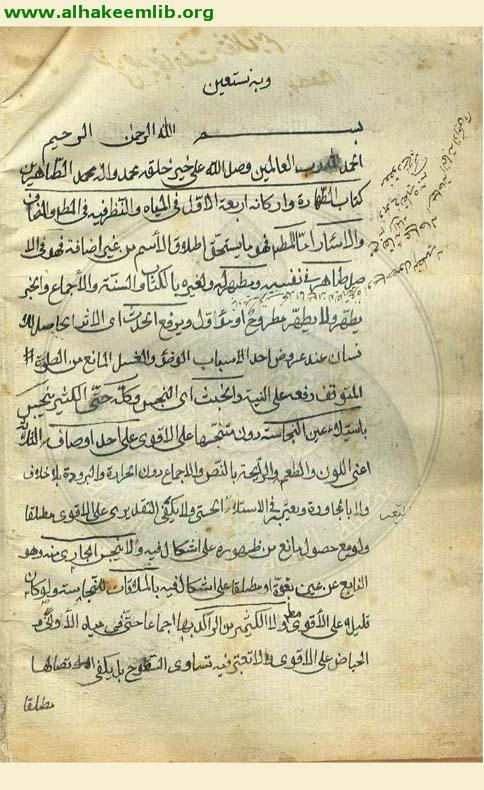 www.alhakeemlib.org
وبه نستعين
بسم الله الرحمن الرحيم
الحمد لله رب العالمين وصلى الله على خير خلقه محمد واله محمد الطاهرين
كتاب الطهارة واركانه اربعة الاول في المياه والنظر فيه في المطلق والمضاف
والاسئار اما المطلق فهو ما يستحق اطلاق الاسم من غير اضافة فهو في الا
صل طاهر في نفسه ومطهر له ولغيره بالكتاب والسنة والاجماع والخبر
يطهر ولا يطهر مطروح او مأول ويرفع الحدث اي الاثر الحاصل للا
نسان عند عروض احد الاسباب الوضوء والغسل المانع من الصلوة
المتوقف رفعه على النية والخبث اي النجس وكله حتى الكثير ينجس
باستيلاء عين النجاسة دون متنجسها على الاقوى على احد اوصافه الثلثة
اعني اللون والطعم والرائحة بالنص والاجماع دون الحرارة والبرودة بلا خلاف
ولا بالمجاورة ويعتبر في الاستيلاء الحسي ولا يكفي التقديري على الاقوى مطلقا
ولو مع حصول مانع من ظهوره على اشكال فيه ولا ينجس الجاري منه وهو
النابع عن عين بقوة او مطلقا على اشكال فيه بالملاقات للنجاسة ولو كان
قليلا على الاقوى ولا الكثير من الراكد بها اجماعا حتى في مياه الاواني و
الحياض على الاقوى ولا تعتبر فيه تساوى السطوح بل يكفي اتصالها
مطلقا